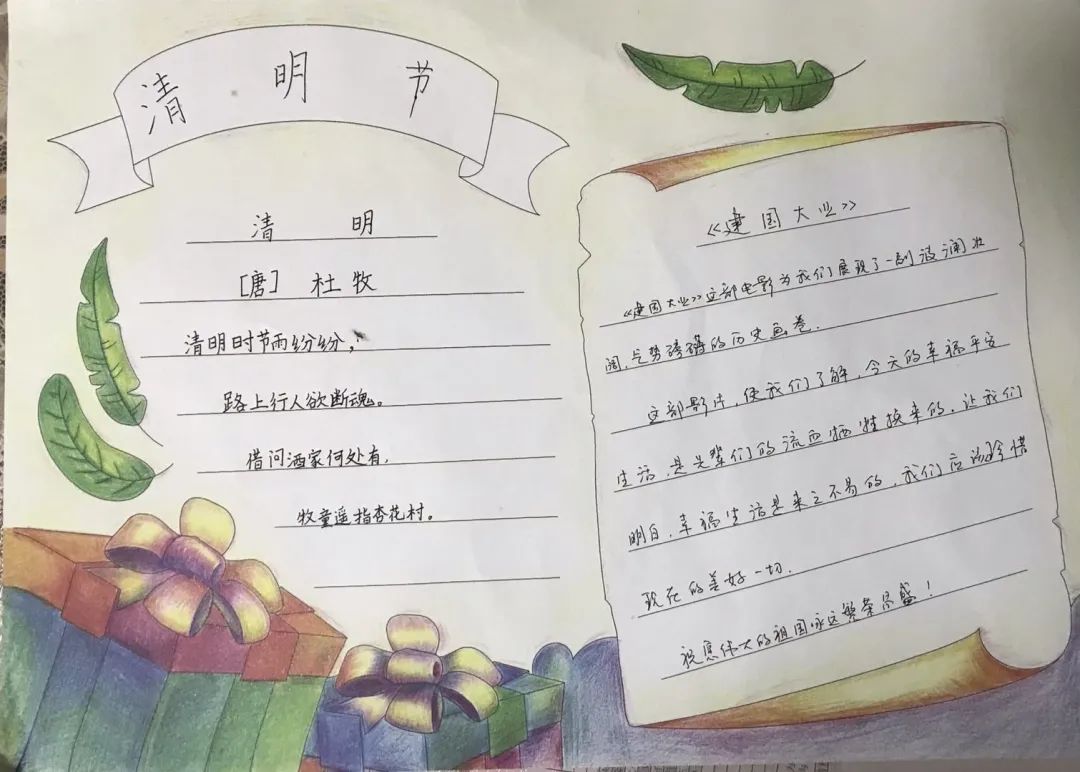 清明节
清明
[唐] 杜牧
清明时节雨纷纷，
路上行人欲断魂。
借问酒家何处有，
牧童遥指杏花村。
《建国大业》
《建国大业》这部电影为我们展现了一副波澜壮
阔，气势磅礴的历史画卷．
这部影片，使我们了解，今天的幸福平安
生活，是先辈们的流血牺牲换来的，让我们
明白，幸福生活是来之不易的，我们应该珍惜
现在的美好一切．
祝愿伟大的祖国永远繁荣昌盛！